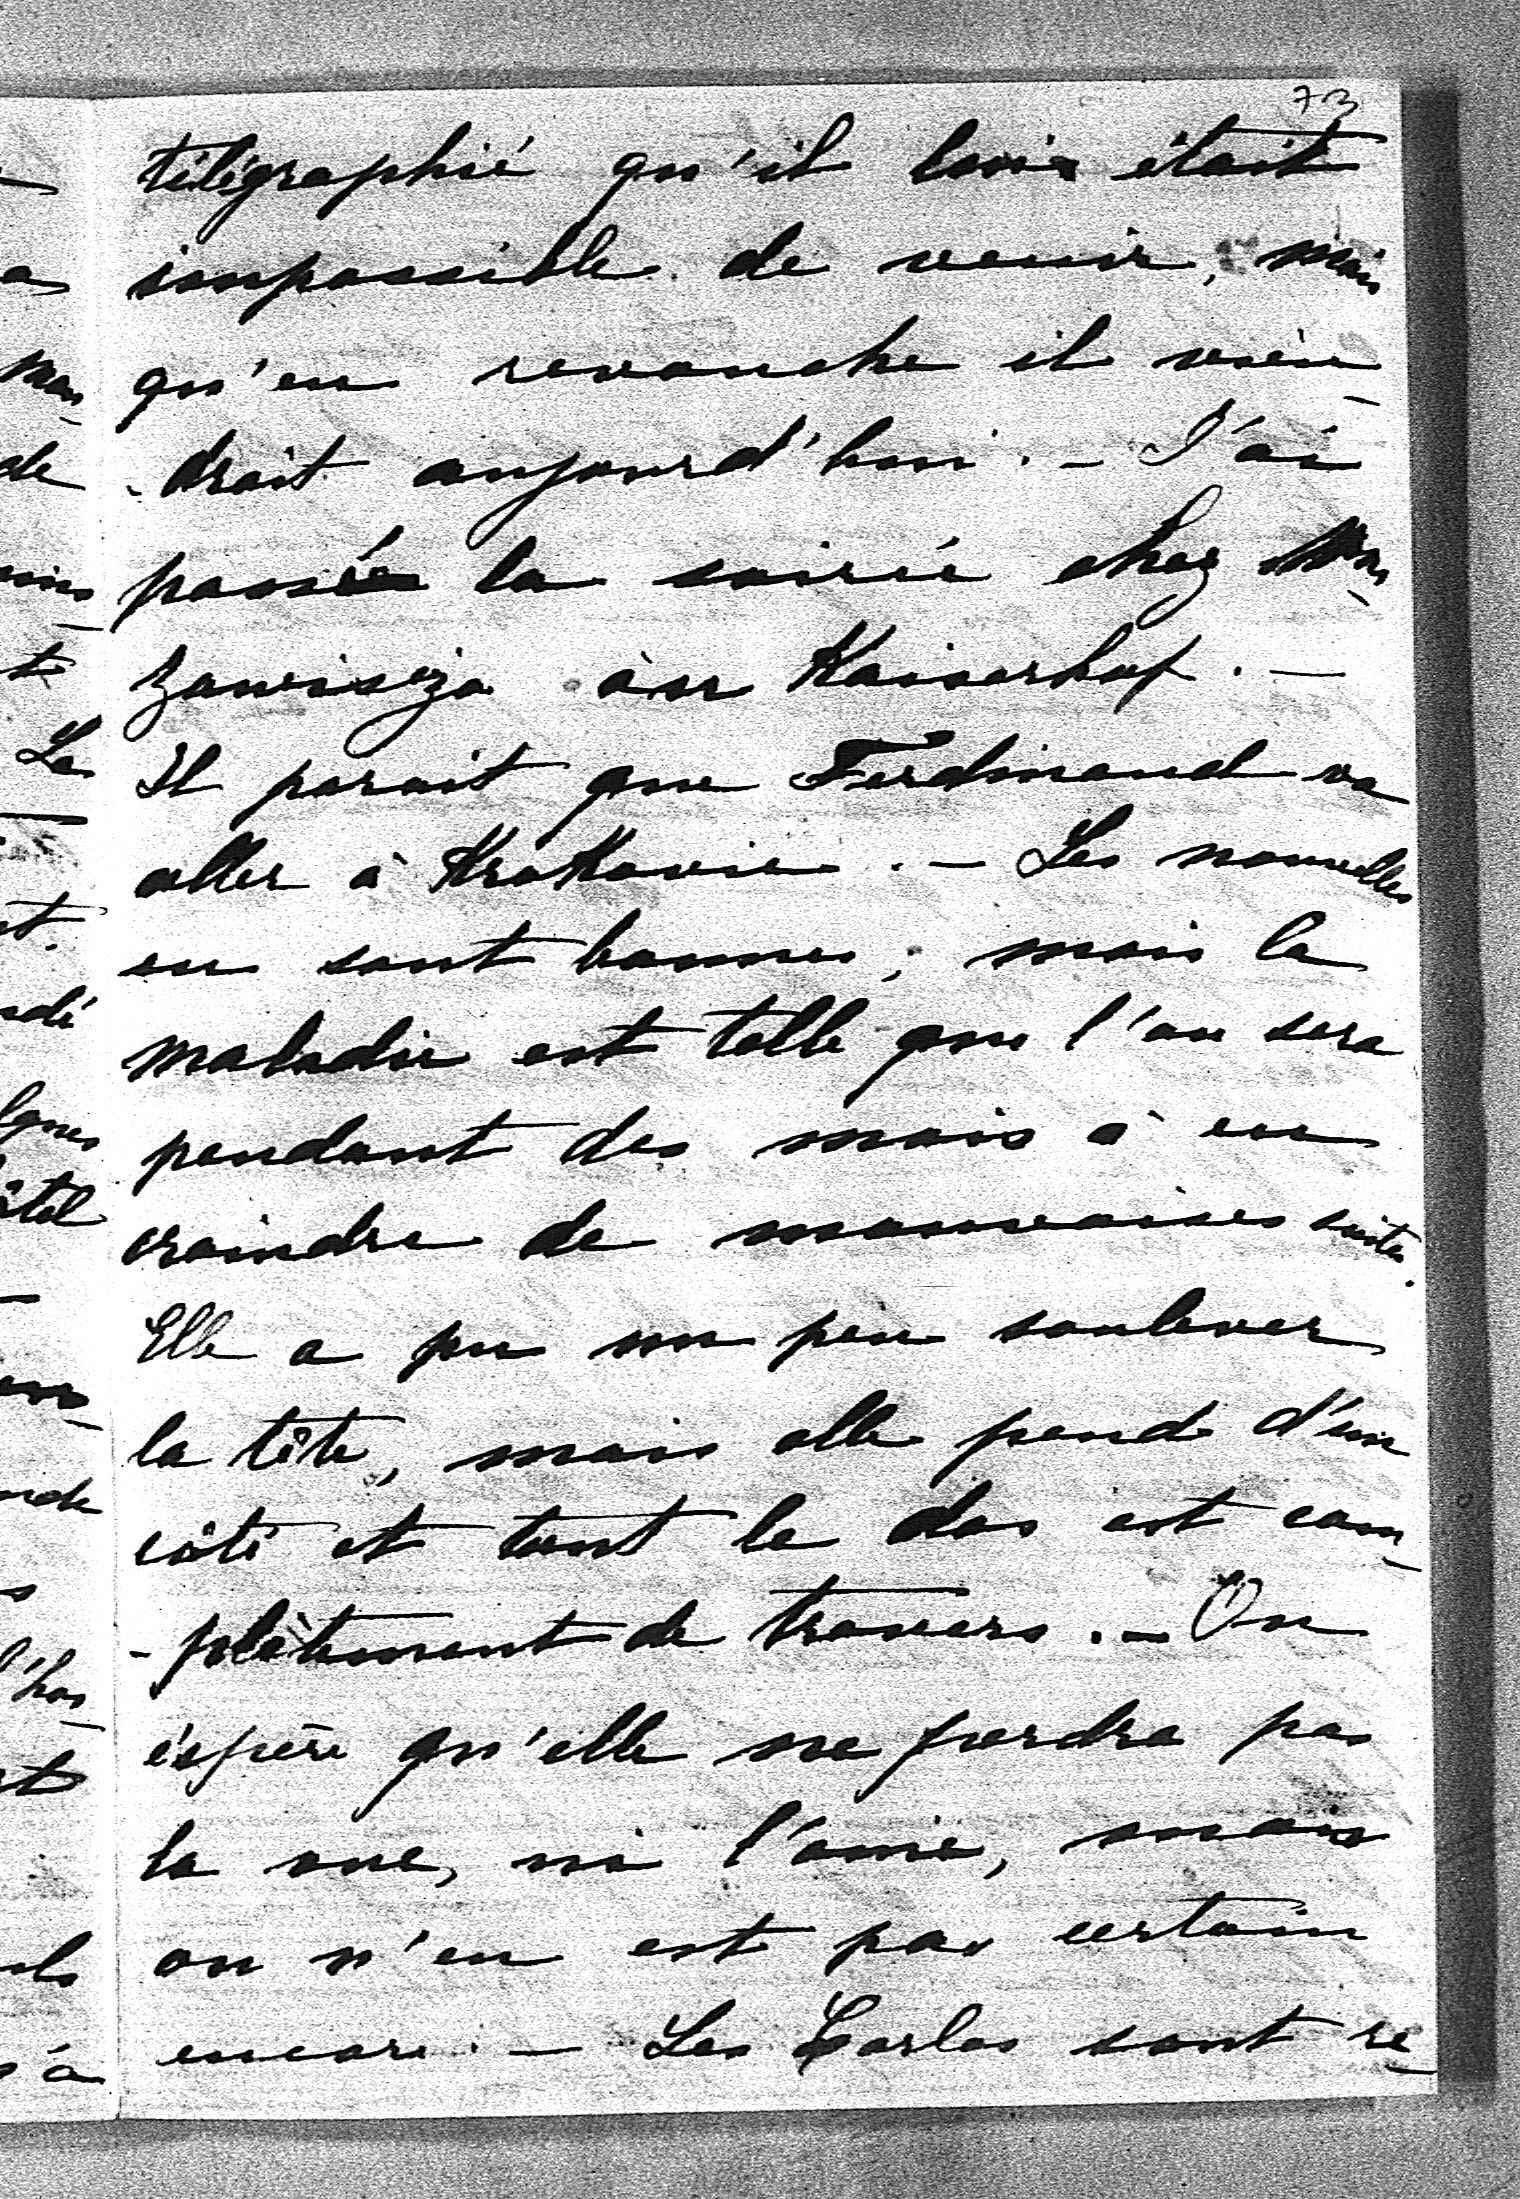 73
télégraphié qu'il lui était
impossible de venir, mais
qu'en revanche il vien-
-drait aujourd'hui. - J'ai
passé la soirée chez M
Zawisza au Kaiserhof. -
Il parait que Ferdinand va
aller à Krakovie. - Les nouvelles
en sont bonnes, mais la
maladie est telle que l'on sera
pendant des mois à en
craindre de mauvaises suites.
Elle a pu un peu soulever
la tête, mais elle pend d'un
côté et tout le dos est com-
-plètement de travers. - On
éspère qu'elle ne perdra pas
la vue, ni l'ouie, mais
on n'en est pas certain
encore. - Les Carlos sont re-